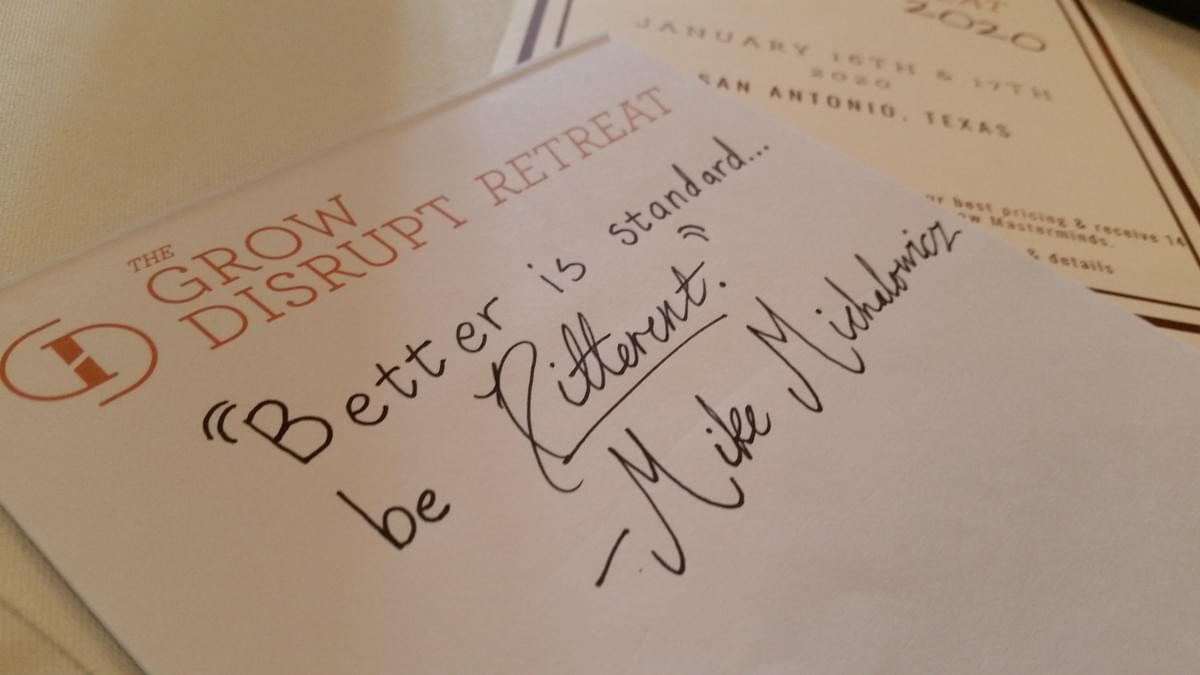 THE
GROW
DISRUPT RETREAT
"Better is standard...
be Different."
-Mike Michalowicz
2020
JANUARY 16TH & 17TH
2020
SAN ANTONIO, TEXAS
best pricing & receive 14
Masterminds.
& details